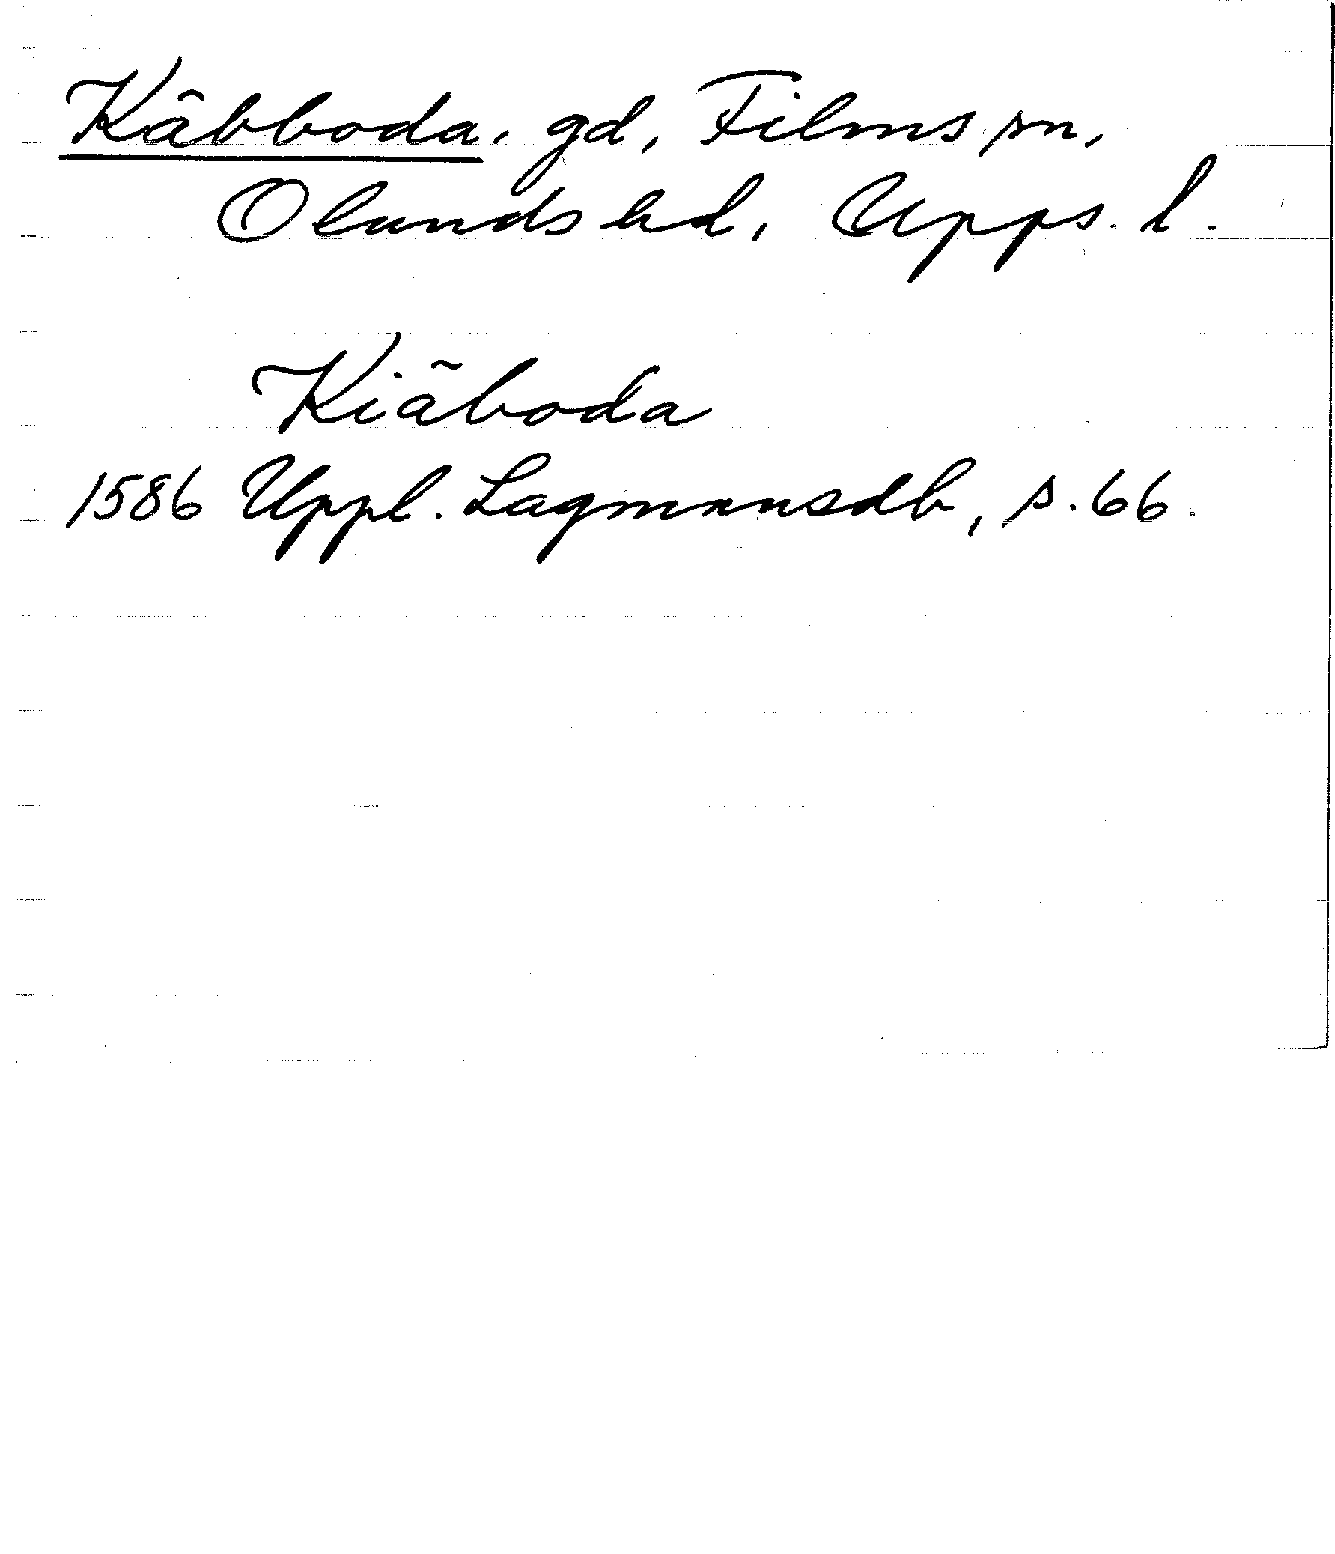 Käbboda, gd, Films sn,
Olands hd, Upps. l.
Kiäboda
1586 Uppl. Lagmansdb, s. 66.